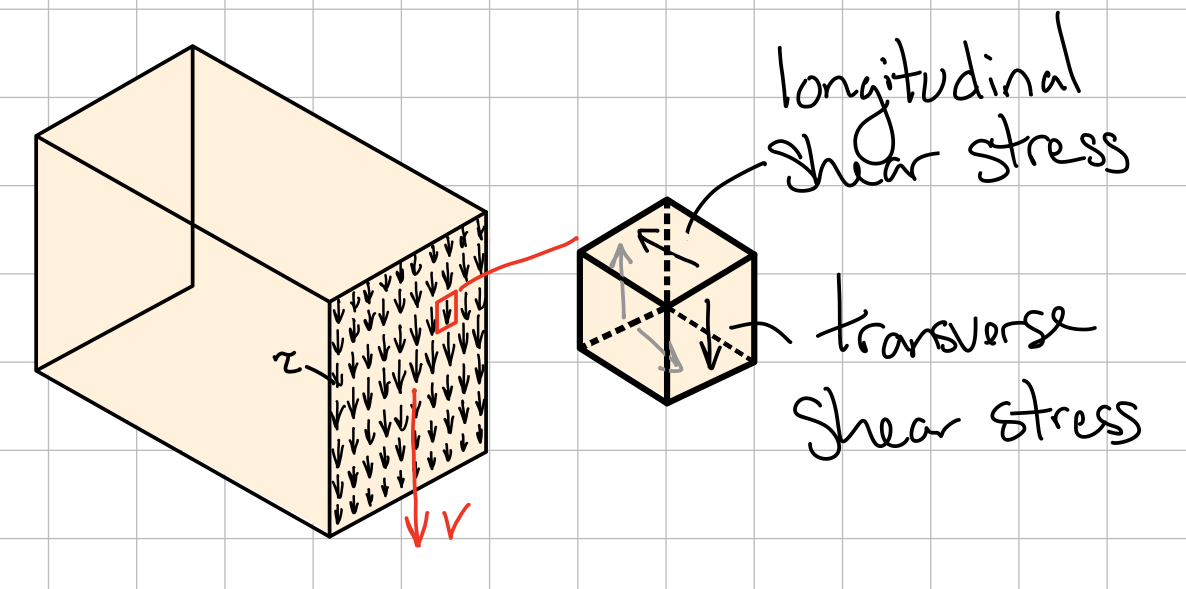 longitudinal
shear stress
τ
transverse
shear stress
V